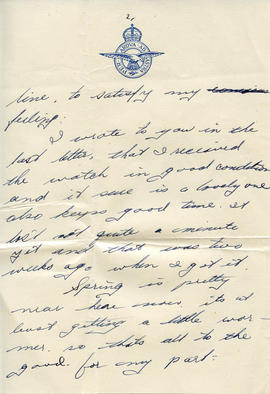 2,
line, to satisfy my
feeling.
I wrote to you in the
last letter, that I received
the watch in good condition
and it sure is a lovely one
also keeps good time. it
los't not quite a minute
yet and that was two
weeks ago when I got it.
Spring is pretty
near hear now, its at
least getting a little war-
mer. so thats all to the
good for my part-